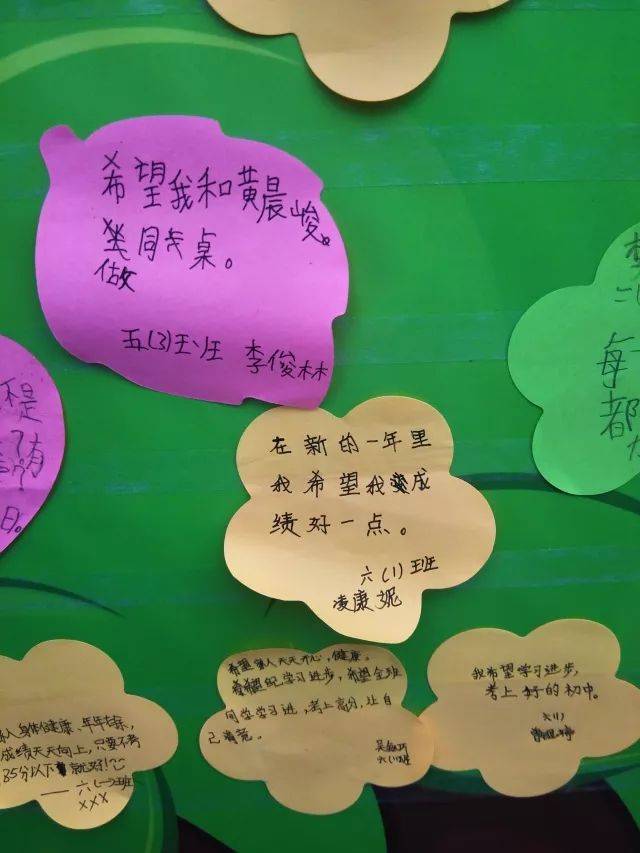 希望我和黄晨峻
同桌。
做
五(3)班 李俊林
不是
了有
日。
每
都
在新的一年里
我希望我成
绩好一点。
六(1)班
凌康妮
希望家人天天开心,健康。
希望自己学习进步,希望全班
同学学习进,考上高分,让自
己满意。
六(1)班
我希望学习进步,
考上好的初中。
六(1)
家人身体健康、年年
成绩天天向上,只要不考
85分以下就好!
——六(一)班
XXX